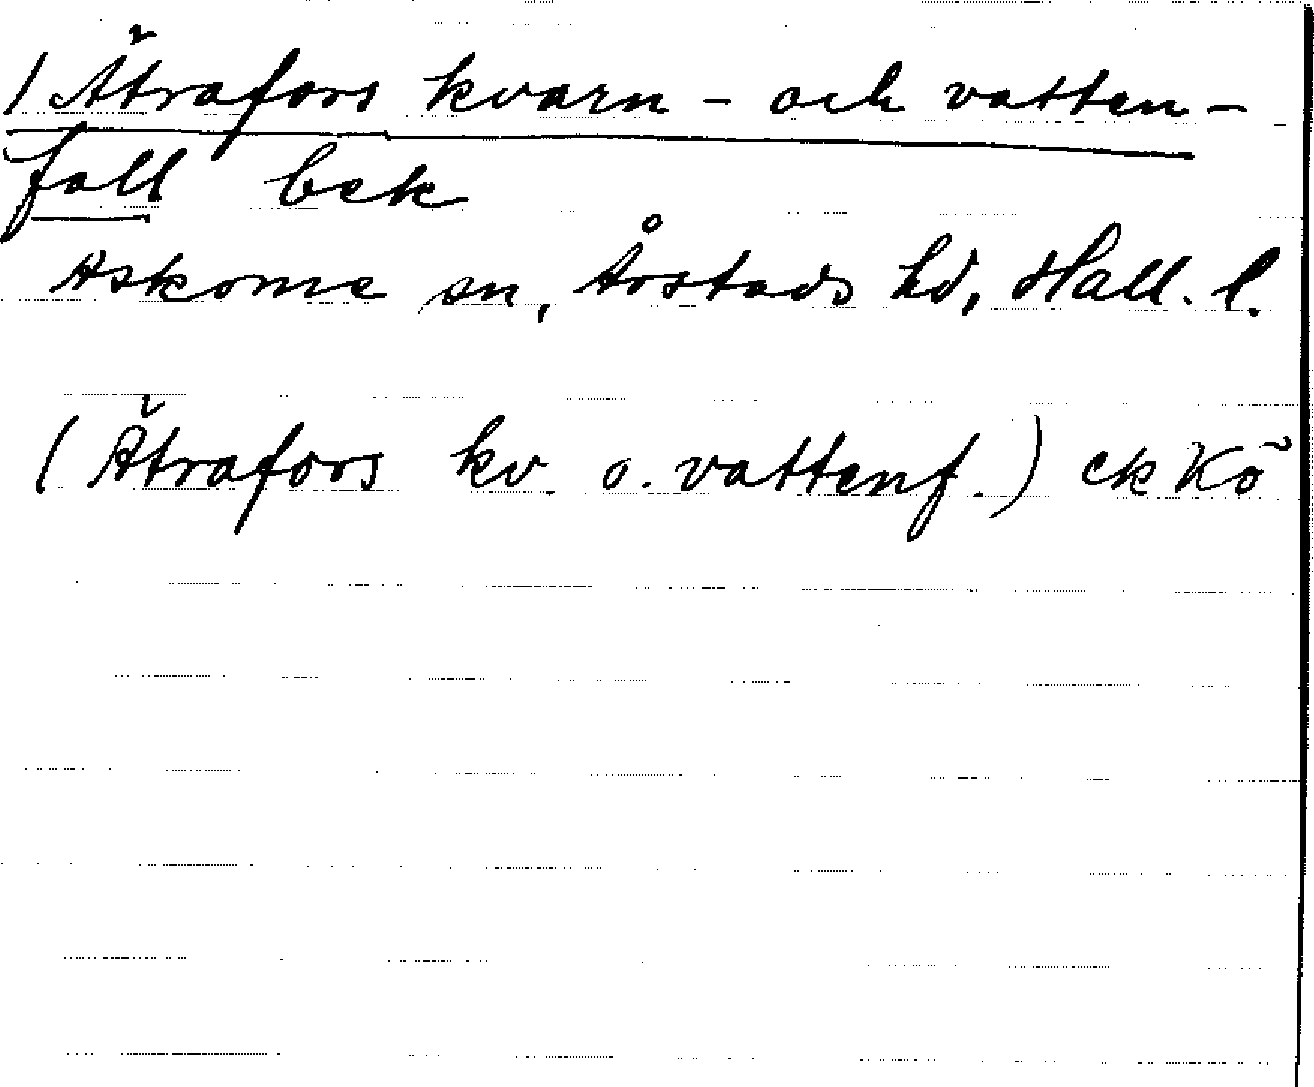 / Ätrafors kvarn- och vatten-
fall bek
Askome sn, Årstads hd, Hall. l.
(Ätrafors kv. o. vattenf.) ek Kö